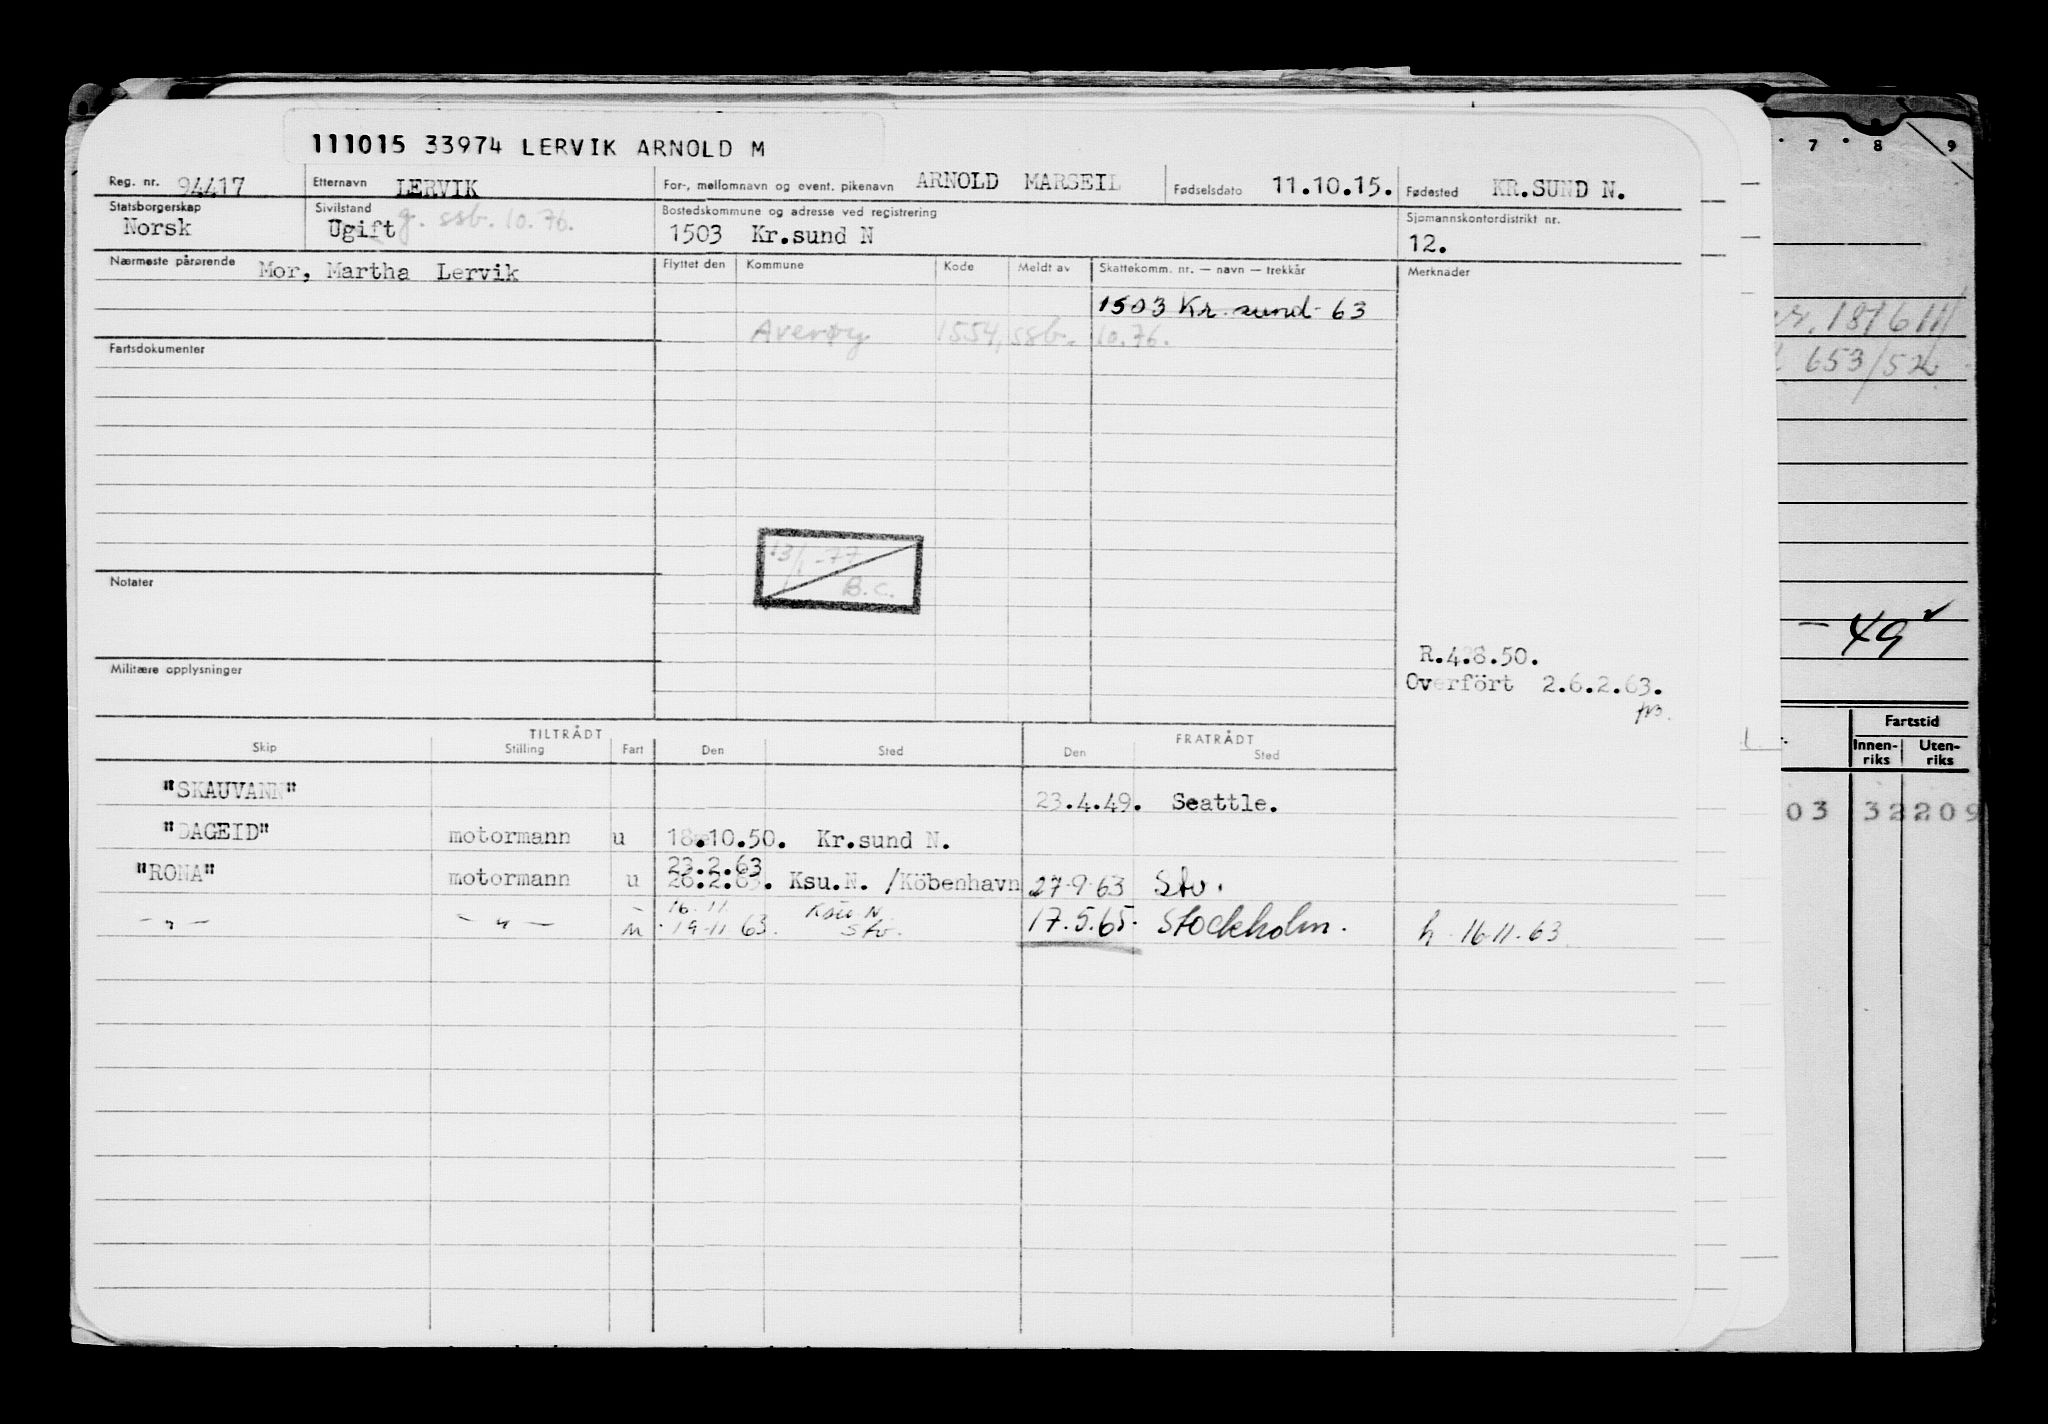 111015 33974 LERVIK ARNOLD M
Reg. nr. 94417 Etternavn LERVIK For-, mellomnavn og event. pikenavn ARNOLD MARSEIL Fødselsdato 11.10.15. Fødested KR.SUND N.
Statsborgerskap Sivilstand Bostedskommune og adresse ved registrering Sjømannskontordistrikt nr.
Norsk Ugift g. ssb. 10.76. 1503 Kr.sund N 12.
Nærmeste pårørende Mor, Martha Lervik Flyttet den Kommune Kode Meldt av Skattekomm. nr. — navn — trekkår Merknader
1503 Kr. sund - 63
Averøy 1554, ssb. 10.76.
Fartsdokumenter
13/1-77
B.C.
Notater
Militære opplysninger
R.4.8.50.
Overført 2.6.2.63.
TILTRÅDT FRATRÅDT
Skip Stilling Fart Den Sted Den Sted
"SKAUVANN" 23.4.49. Seattle.
"DAGEID" motormann u 18.10.50. Kr.sund N.
23.2.63
"RONA" motormann u 26.2.63. Ksu.N. /Köbenhavn 27-9-63 Stv.
16.11 Ksu N
-"- -"- u 19-11 63. Stv. 17.5.65. Stockholm. h. 16.11.63.
7 8 9
187611
653/52
- 49
Fartstid
Innen-riks Uten-riks
03 32209